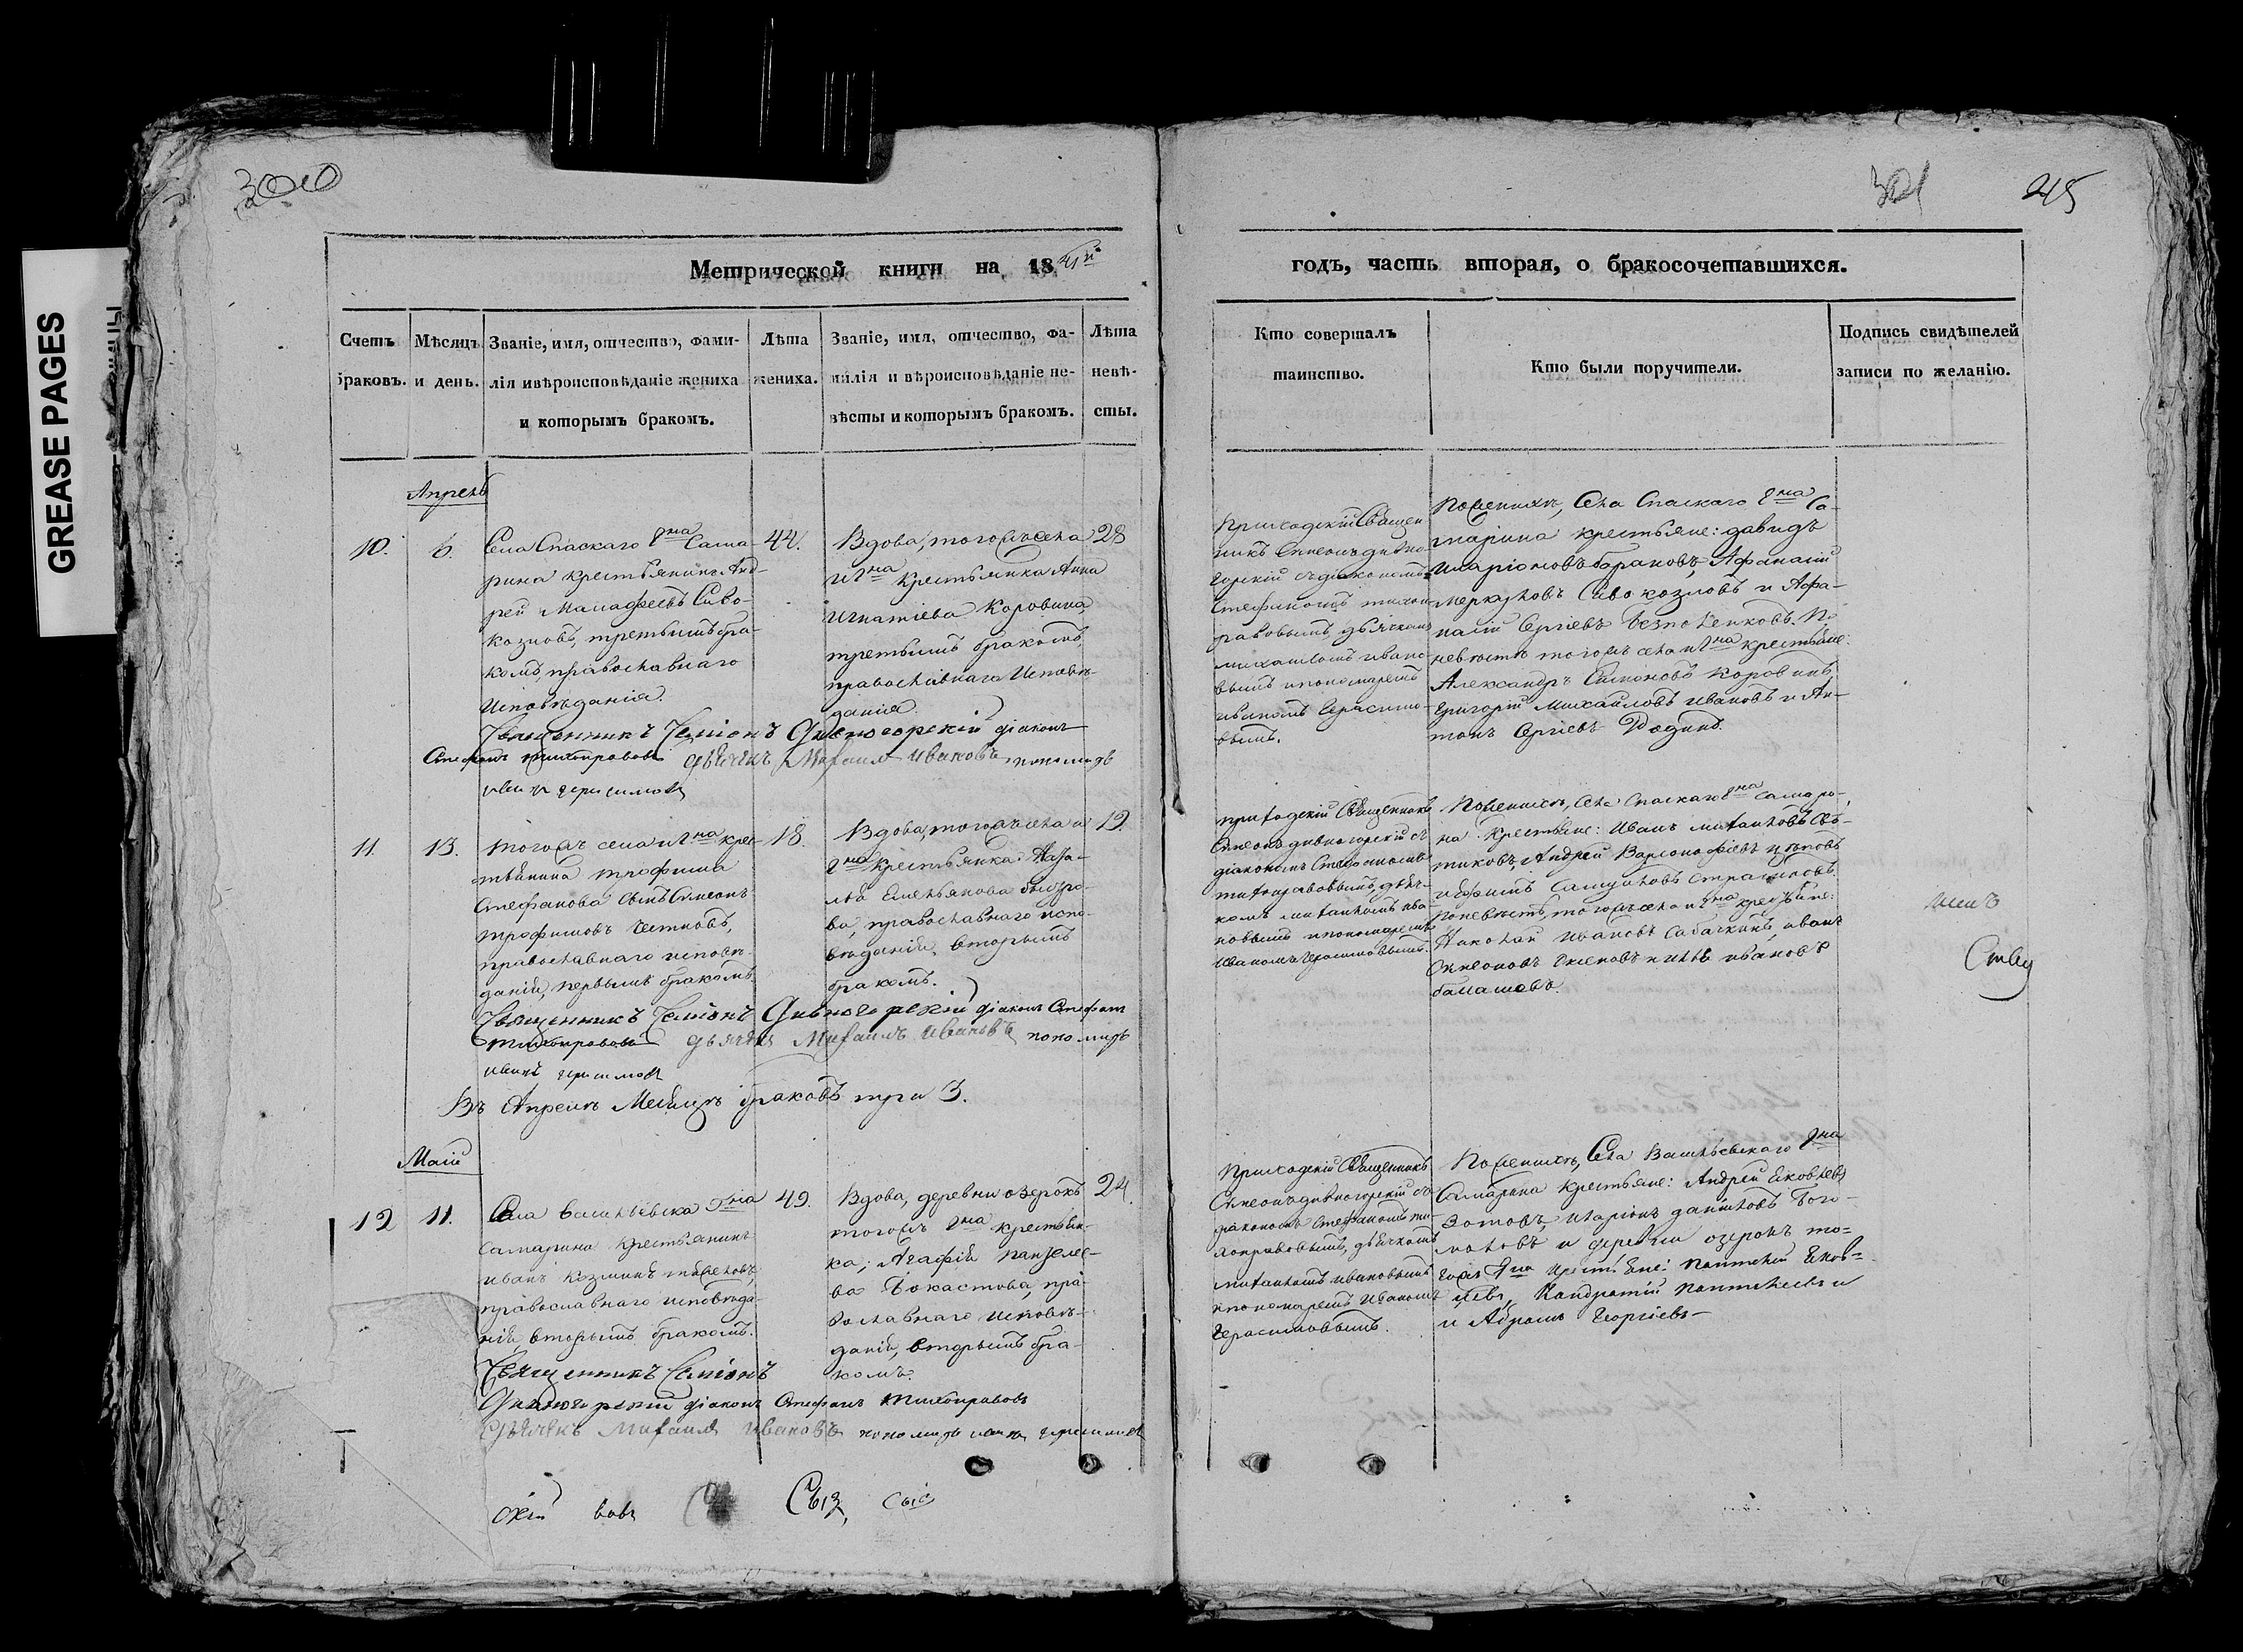 GREASE PAGES
300
301
215
Метрической книги на 18 41й
годъ, часть вторая, о бракосочетавшихся.
Счетъ
браковъ.
Мѣсяцъ
и день.
Званіе, имя, отчество, фами-
лія и вѣроисповѣданіе жениха
и которымъ бракомъ.
Лѣта
жениха.
Званіе, имя, отчество, фа-
милія и вѣроисповѣданіе не-
вѣсты и которымъ бракомъ.
Лѣта
невѣ-
сты.
Кто совершалъ
таинство.
Кто были поручители.
Подпись свидѣтелей
записи по желанію.
Апрель
10.
6.
Села Спаскаго Гна Сама-
рина крестьянинъ Анд-
рей Малафеевъ Сиво-
козловъ, третьимъ бра-
комъ, православнаго
исповѣданія.
44.
Вдова, тогожъ села
и Гна крестьянка Анна
Игнатіева Коровина,
третьимъ бракомъ,
православнаго исповѣ-
данія.
28
Приходскій Священ
никъ Симеонъ Дивно-
горскій съ діакономъ
Стефаномъ Тихон-
равовымъ, дьячкомъ
Михаиломъ Ивано-
вымъ и пономаремъ
Иваномъ Герасимо-
вымъ.
По женихѣ, Села Спаскаго Гна Са-
марина крестьяне: Давидъ
Иларіоновъ, Афанасій
Меркуловъ Сивокозловъ и Афа-
насій Сергіевъ. По
невѣстѣ тогожъ села и Гна крестьяне:
Александръ Симоновъ Коровинъ,
Григорій Михайловъ Ивановъ и Ан-
тонъ Сергіевъ Родинъ.
Священникъ Семіонъ Дивногорскій діаконъ
Стефанъ Тихонравовъ дьячекъ Михаилъ Ивановъ пономарь
Иванъ Герасимовъ
11.
13.
Тогожъ села и Гна крес-
тьянина Трофима
Стефанова сынъ Симеонъ
Трофимовъ,
православнаго исповѣ-
данія, первымъ бракомъ.
18.
Вдова, тогожъ села и
Гна крестьянка
Емельянова
ва, православнаго испо-
вѣданія, вторымъ
бракомъ.
19.
Приходскій Священникъ
Симеонъ Дивногорскій съ
діакономъ Стефаномъ
Тихонравовымъ, дьяч-
комъ Михаиломъ Ива-
новымъ и пономаремъ
Иваномъ Герасимовымъ.
По женихѣ, Села Спаскаго Гна Самари-
на крестьяне: Иванъ Михаиловъ
Андрей Варсонофіевъ
По невѣстѣ, тогожъ села и Гна крестьяне:
Николай Ивановъ Иванъ
Симеоновъ Ивановъ
Балашовъ.
Священникъ Семіонъ Дивногорскій діаконъ Стефанъ
Тихонравовъ дьячекъ Михаилъ Ивановъ пономарь
Иванъ Герасимовъ
Въ Апрелѣ Месяцѣ браковъ три 3.
Маій
12
11.
Села Васильевска Гна
Самарина крестьянинъ
Иванъ Козминъ
православнаго исповѣда-
нія, вторымъ бракомъ.
49.
Вдова, деревни Озерокъ
тогожъ Гна крестьян-
ка, Агафія Пантелее-
ва, пра-
вославнаго исповѣ-
данія, вторымъ бра-
комъ.
24.
Приходскій Священникъ
Симеонъ Дивногорскій съ
діакономъ Стефаномъ Ти-
хонравовымъ, дьячкомъ
Михаиломъ Ивановымъ
и пономаремъ Иваномъ
Герасимовымъ.
По женихѣ, Села Васильевскаго Гна
Самарина крестьяне: Андрей Яковлевъ
Зотовъ, Иларіонъ Даниловъ Бого-
моловъ и деревни Озерокъ то-
гожъ Гна крестьяне: Пантелей Яков-
левъ, Кондратій Пантелеевъ и
и Абрамъ Георгіевъ
Священникъ Семіонъ
Дивногорскій діаконъ Стефанъ Тихонравовъ
дьячекъ Михаилъ Ивановъ пономарь Иванъ Герасимовъ
вовъ
Сыз, сыс